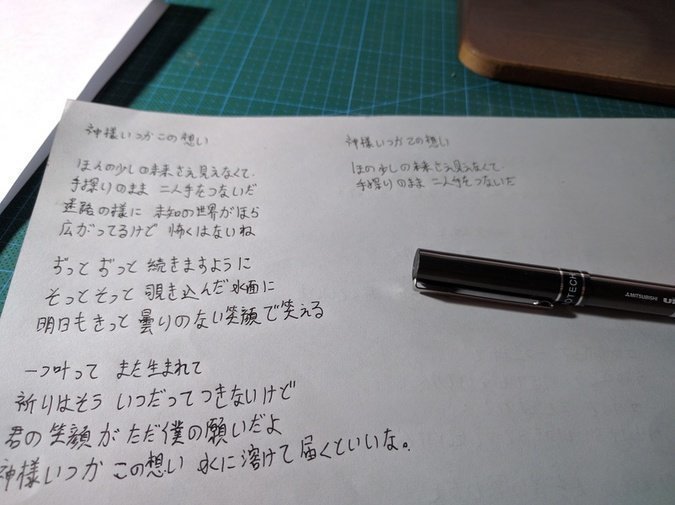 神様いつかこの想い
ほんの少しの未来さえ見えなくて
手探りのまま 二人手をつないだ
迷路の様に 未知の世界がほら
広がってるけど 怖くはないね
ずっと ずっと 続きますように
そっとそっと 覗き込んだ水面に
明日もきっと 曇りのない笑顔で笑える
一つ叶って また生まれて
祈りはそう いつだって つきないけど
君の笑顔が ただ僕の願いだよ
神様いつか この想い 水に溶けて 届くといいな。
神様いつかこの想い
ほの少しの未来さえ見えなくて
手探りのまま 二人手をつないだ
OTECH
MITSUBISHI